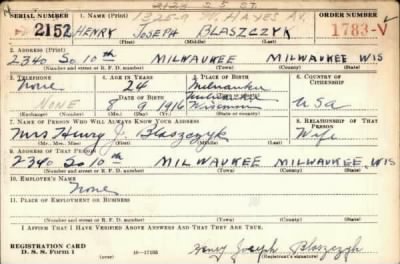 2123 S. 5 ST.
SERIAL NUMBER 1. NAME (Print) 1325-A HAYES AV. ORDER NUMBER
2152 HENRY JOSEPH BLASZCZYK 1783-V
(First) (Middle) (Last)
2. ADDRESS (Print)
2340 So 10th MILWAUKEE MILWAUKEE WIS
(Number and street or R. F. D. number) (Town) (County) (State)
3. TELEPHONE 4. AGE IN YEARS 5. PLACE OF BIRTH 6. COUNTRY OF CITIZENSHIP
None 24 Milwaukee
NONE 8 9 1916 Wisconsin USA
(Exchange) (Number) (Mo.) (Day) (Yr.) (State or country)
7. NAME OF PERSON WHO WILL ALWAYS KNOW YOUR ADDRESS 8. RELATIONSHIP OF THAT PERSON
Mrs Henry J. Blaszczyk Wife
(Mr., Mrs., Miss) (First) (Middle) (Last)
9. ADDRESS OF THAT PERSON
2340 So 10th MILWAUKEE MILWAUKEE, WIS
(Number and street or R. F. D. number) (Town) (County) (State)
10. EMPLOYER'S NAME
None
11. PLACE OF EMPLOYMENT OR BUSINESS
(Number and street or R. F. D. number) (Town) (County) (State)
I AFFIRM THAT I HAVE VERIFIED ABOVE ANSWERS AND THAT THEY ARE TRUE.
REGISTRATION CARD
D. S. S. Form 1 16-17105 Henry Joseph Blaszczyk
(Registrant's signature)